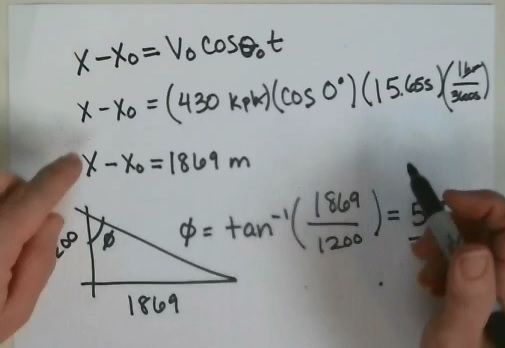 X - X₀ = V₀ cosθ₀ t
X - X₀ = (430 kph)(cos 0°)(15.65s)(1hr/3600s)
X - X₀ = 1869 m
ϕ = tan⁻¹(1869/1200) = 5
ϕ
1869